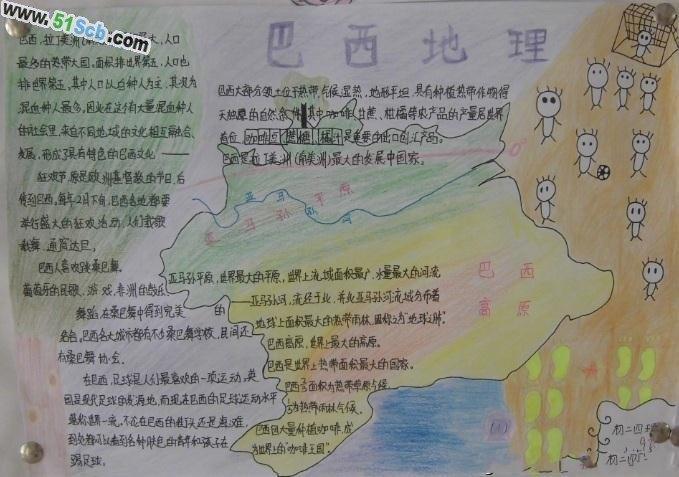 www.51Scb.com
巴西地理
最多的热带大国,面积排世界第五,人口也
排世界第五,其中人口以白种人为主,其次为
混血种人最多,因此在这个有大量混血种人
的社会里,来自不同地域的文化相互融合、
发展,形成了很有特色的巴西文化——
狂欢节,原是欧洲基督教的节日,后
传到巴西,每年2月下旬,巴西各地都要
举行盛大的狂欢活动,人们载歌
载舞,通宵达旦。
巴西人喜欢跳桑巴舞。
葡萄牙的民歌、游戏,非洲的鼓乐、
舞蹈,在桑巴舞中得到完美的
结合。巴西各大城市都有不少桑巴舞学校,民间还
有桑巴舞协会。
在巴西,足球是人们最喜欢的一项运动,英
国是现代足球的发源地,而现在巴西的足球运动水平
是称世界一流,不论在巴西的街头还是海滩,
到处都可以看到各种肤色的青年和孩子在
踢足球。
巴西大部分领土位于热带,气候湿热,地形平坦,具有种植热带作物得
天独厚的自然条件,其中咖啡、甘蔗、柑橘等农产品的产量居世界
首位,咖啡豆、蔗糖、橘汁是重要的出口创汇产品。
巴西是拉丁美洲(南美洲)最大的发展中国家。
0°
亚马孙河
亚马孙平原
亚马孙平原,世界最大的平原,世界上流域面积最广、水量最大的河流
——亚马孙河,流经于此,并在亚马孙河流域分布着
地球上面积最大的热带雨林,固称为"地球之肺"。
巴西高原,世界上最大的高原。
巴西是世界上热带面积最大的国家。
巴西面积为热带草原气候
为热带雨林气候。
巴西因大量种植咖啡,成
为世界上的"咖啡王国"。
巴西
高原
初二四班
初二